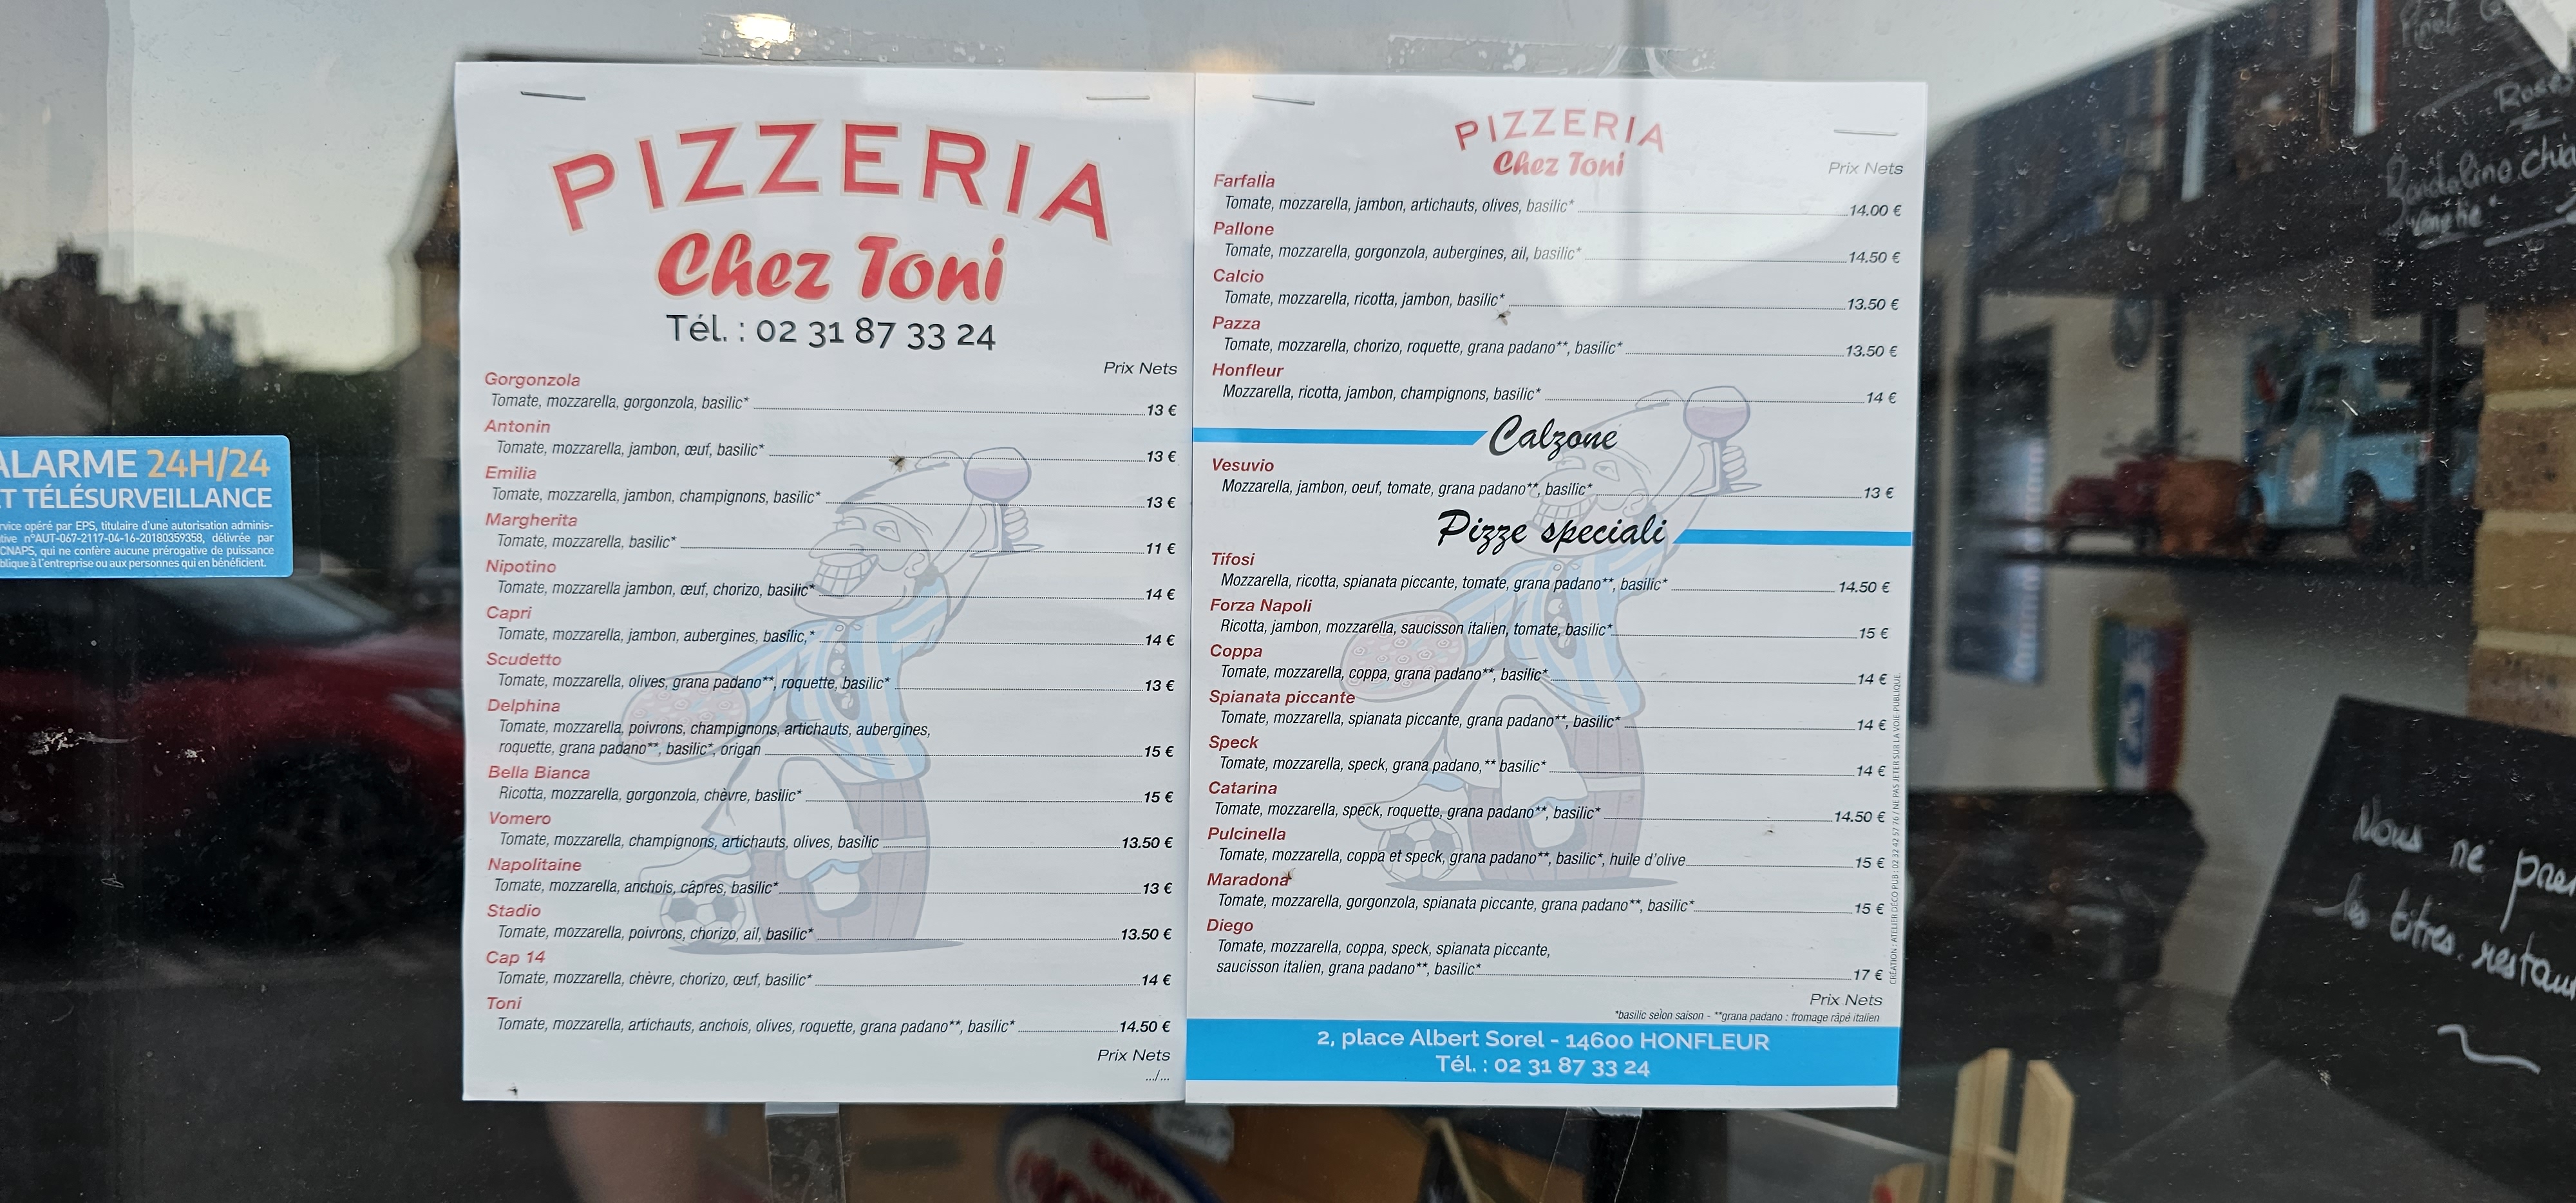 ALARME 24H/24
ET TÉLÉSURVEILLANCE
opéré par EPS, titulaire d'une autorisation adminis-
n°AUT-067-2117-04-16-20180359358, délivrée par
CNAPS, qui ne confère aucune prérogative de puissance
à l'entreprise ou aux personnes qui en bénéficient.
PIZZERIA
Chez Toni
Tél. : 02 31 87 33 24
Prix Nets
Gorgonzola
Tomate, mozzarella, gorgonzola, basilic* 13 €
Antonin
Tomate, mozzarella, jambon, œuf, basilic* 13 €
Emilia
Tomate, mozzarella, jambon, champignons, basilic* 13 €
Margherita
Tomate, mozzarella, basilic* 11 €
Nipotino
Tomate, mozzarella jambon, œuf, chorizo, basilic* 14 €
Capri
Tomate, mozzarella, jambon, aubergines, basilic,* 14 €
Scudetto
Tomate, mozzarella, olives, grana padano**, roquette, basilic* 13 €
Delphina
Tomate, mozzarella, poivrons, champignons, artichauts, aubergines,
roquette, grana padano**, basilic*, origan 15 €
Bella Bianca
Ricotta, mozzarella, gorgonzola, chèvre, basilic* 15 €
Vomero
Tomate, mozzarella, champignons, artichauts, olives, basilic 13.50 €
Napolitaine
Tomate, mozzarella, anchois, câpres, basilic* 13 €
Stadio
Tomate, mozzarella, poivrons, chorizo, ail, basilic* 13.50 €
Cap 14
Tomate, mozzarella, chèvre, chorizo, œuf, basilic* 14 €
Toni
Tomate, mozzarella, artichauts, anchois, olives, roquette, grana padano**, basilic* 14.50 €
Prix Nets
.../...
PIZZERIA
Chez Toni
Prix Nets
Farfalla
Tomate, mozzarella, jambon, artichauts, olives, basilic* 14.00 €
Pallone
Tomate, mozzarella, gorgonzola, aubergines, ail, basilic* 14.50 €
Calcio
Tomate, mozzarella, ricotta, jambon, basilic* 13.50 €
Pazza
Tomate, mozzarella, chorizo, roquette, grana padano**, basilic* 13.50 €
Honfleur
Mozzarella, ricotta, jambon, champignons, basilic* 14 €
Calzone
Vesuvio
Mozzarella, jambon, oeuf, tomate, grana padano**, basilic* 13 €
Pizze speciali
Tifosi
Mozzarella, ricotta, spianata piccante, tomate, grana padano**, basilic* 14.50 €
Forza Napoli
Ricotta, jambon, mozzarella, saucisson italien, tomate, basilic* 15 €
Coppa
Tomate, mozzarella, coppa, grana padano**, basilic* 14 €
Spianata piccante
Tomate, mozzarella, spianata piccante, grana padano**, basilic* 14 €
Speck
Tomate, mozzarella, speck, grana padano,** basilic* 14 €
Catarina
Tomate, mozzarella, speck, roquette, grana padano**, basilic* 14.50 €
Pulcinella
Tomate, mozzarella, coppa et speck, grana padano**, basilic*, huile d'olive 15 €
Maradona
Tomate, mozzarella, gorgonzola, spianata piccante, grana padano**, basilic* 15 €
Diego
Tomate, mozzarella, coppa, speck, spianata piccante,
saucisson italien, grana padano**, basilic* 17 €
Prix Nets
*basilic selon saison - **grana padano : fromage râpé italien
2, place Albert Sorel - 14600 HONFLEUR
Tél. : 02 31 87 33 24
CRÉATION : ATELIER DÉCO PUB : 02 32 42 57 76 / NE PAS JETER SUR LA VOIE PUBLIQUE
Nous ne
les titres